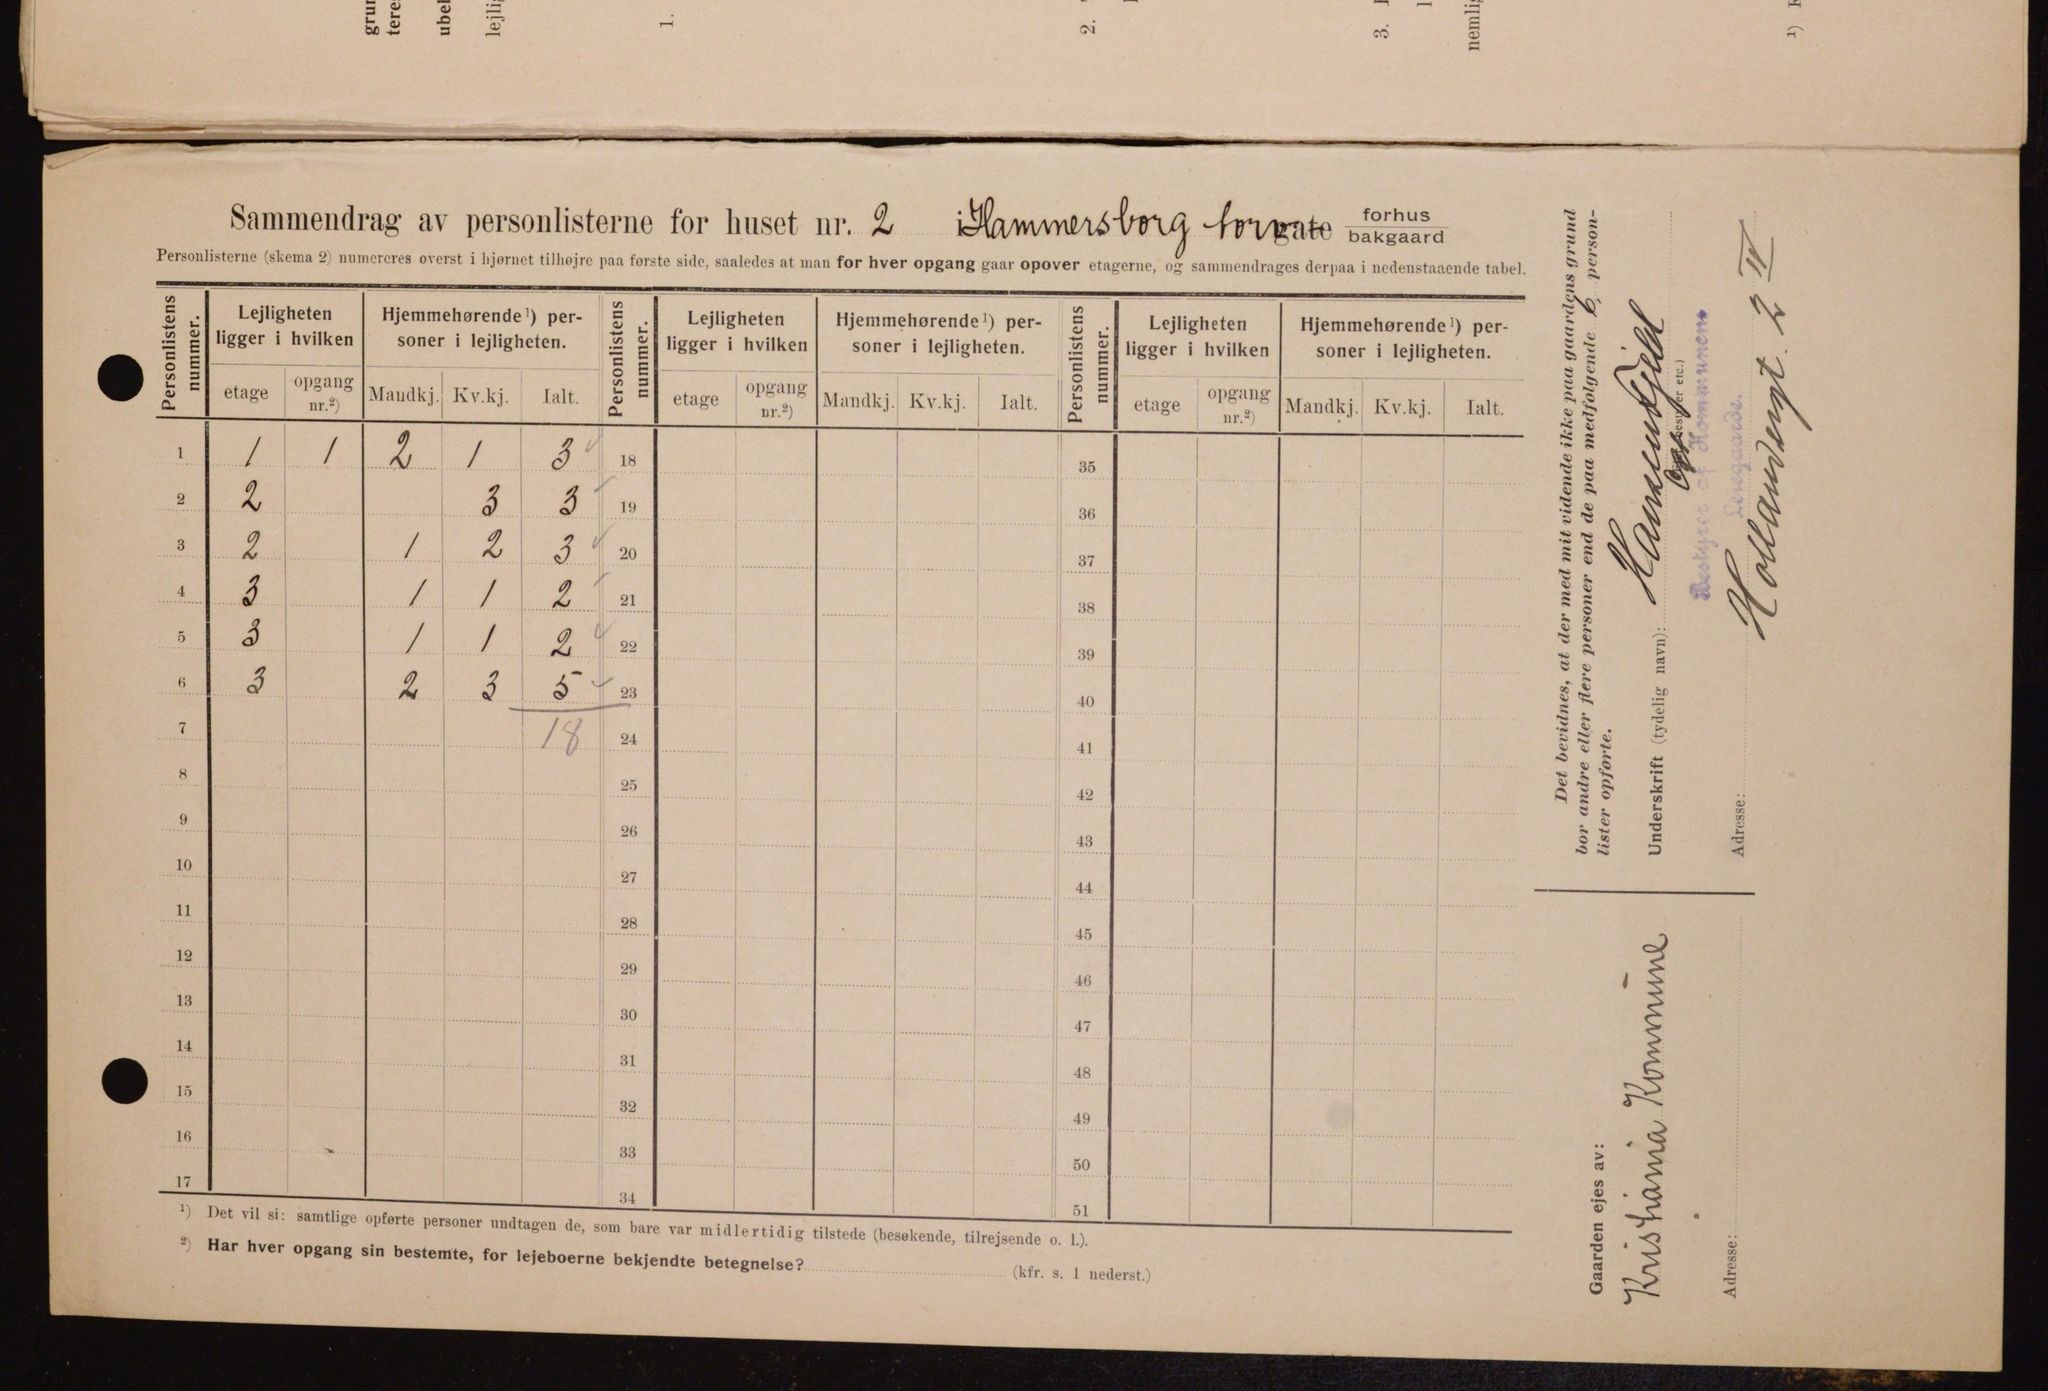 grun
teres
ubel
lejlig
1.
2.
3.
nemlig
1)
Sammendrag av personlisterne for huset nr. 2 i Hammersborg torv gate forhus
bakgaard
Personlisterne (skema 2) numereres øverst i hjørnet tilhøjre paa første side, saaledes at man for hver opgang gaar opover etagerne, og sammendrages derpaa i nedenstaaende tabel.
Personlistens nummer. Lejligheten ligger i hvilken Hjemmehørende¹) personer i lejligheten. Personlistens nummer. Lejligheten ligger i hvilken Hjemmehørende¹) personer i lejligheten. Personlistens nummer. Lejligheten ligger i hvilken Hjemmehørende¹) personer i lejligheten.
etage opgang nr.²) Mandkj. Kv.kj. Ialt. etage opgang nr.²) Mandkj. Kv.kj. Ialt. etage opgang nr.²) Mandkj. Kv.kj. Ialt.
1 1 1 2 1 3 18 35
2 2 3 3 19 36
3 2 1 2 3 20 37
4 3 1 1 2 21 38
5 3 1 1 2 22 39
6 3 2 3 5 23 40
7 18 24 41
8 25 42
9 26 43
10 27 44
11 28 45
12 29 46
13 30 47
14 31 48
15 32 49
16 33 50
17 34 51
¹) Det vil si: samtlige opførte personer undtagen de, som bare var midlertidig tilstede (besøkende, tilrejsende o. l.).
²) Har hver opgang sin bestemte, for lejeboerne bekjendte betegnelse? (kfr. s. 1 nederst.)
Det bevidnes, at der med mit vidende ikke paa gaardens grund
bor andre eller flere personer end de paa medfølgende 6 person-
lister opførte.
Underskrift (tydelig navn):
bestyrer etc.)
Bestyrer af Kommunens
Leiegaarde.
Adresse: Hollendergt. 2 IV
Gaarden ejes av:
Kristiania Kommune
Adresse: